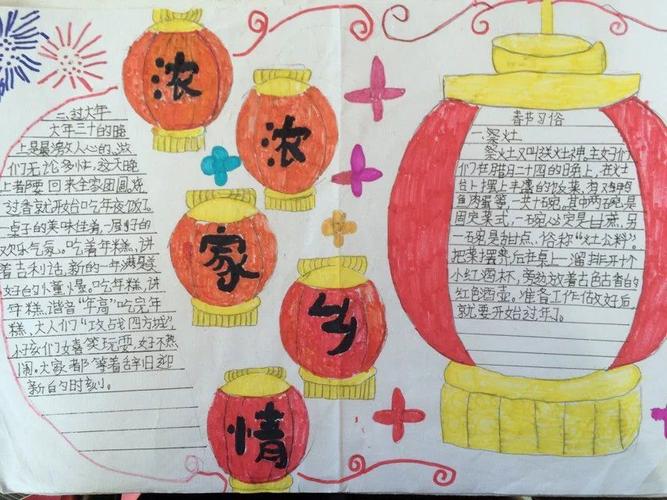 浓
浓
家
乡
情
二、过大年
大年三十的晚
上是最激人心的,游
们无论多忙,这天晚
上都要回来全家团圆,烧
过香就开始吃年夜饭了。
桌子的美味佳肴,一屋好的
欢乐气氛。吃着年糕,讲
着吉利话,新的一年满是
好台的小童星。吃年糕,讲
年糕,谐音“年高”吃完年
糕,大人们“攻占四方城”,
小孩们嬉笑玩耍,好不热
闹。大家都等着辞旧迎
新的时刻。
春节习俗
一、祭灶
祭灶又叫送灶神。主妇们
们在腊月二十四的日子,在灶
台上摆上丰盛的饭菜,有鸡鸭
鱼肉蛋等,一共七碗。其中两碗是
固定菜式,一碗必定是甘蔗,另
一碗是甜点,俗称“灶公料”。
把菜摆齐后在桌上一溜排开十个
小红酒杯,旁边放着古色古香的
红色酒壶。准备工作做好后,
就要开始过年了。